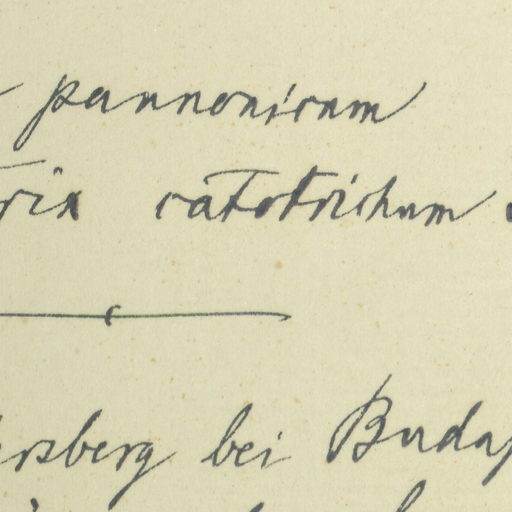 pannonicum
trix catotrichum
rzberg bei Budap